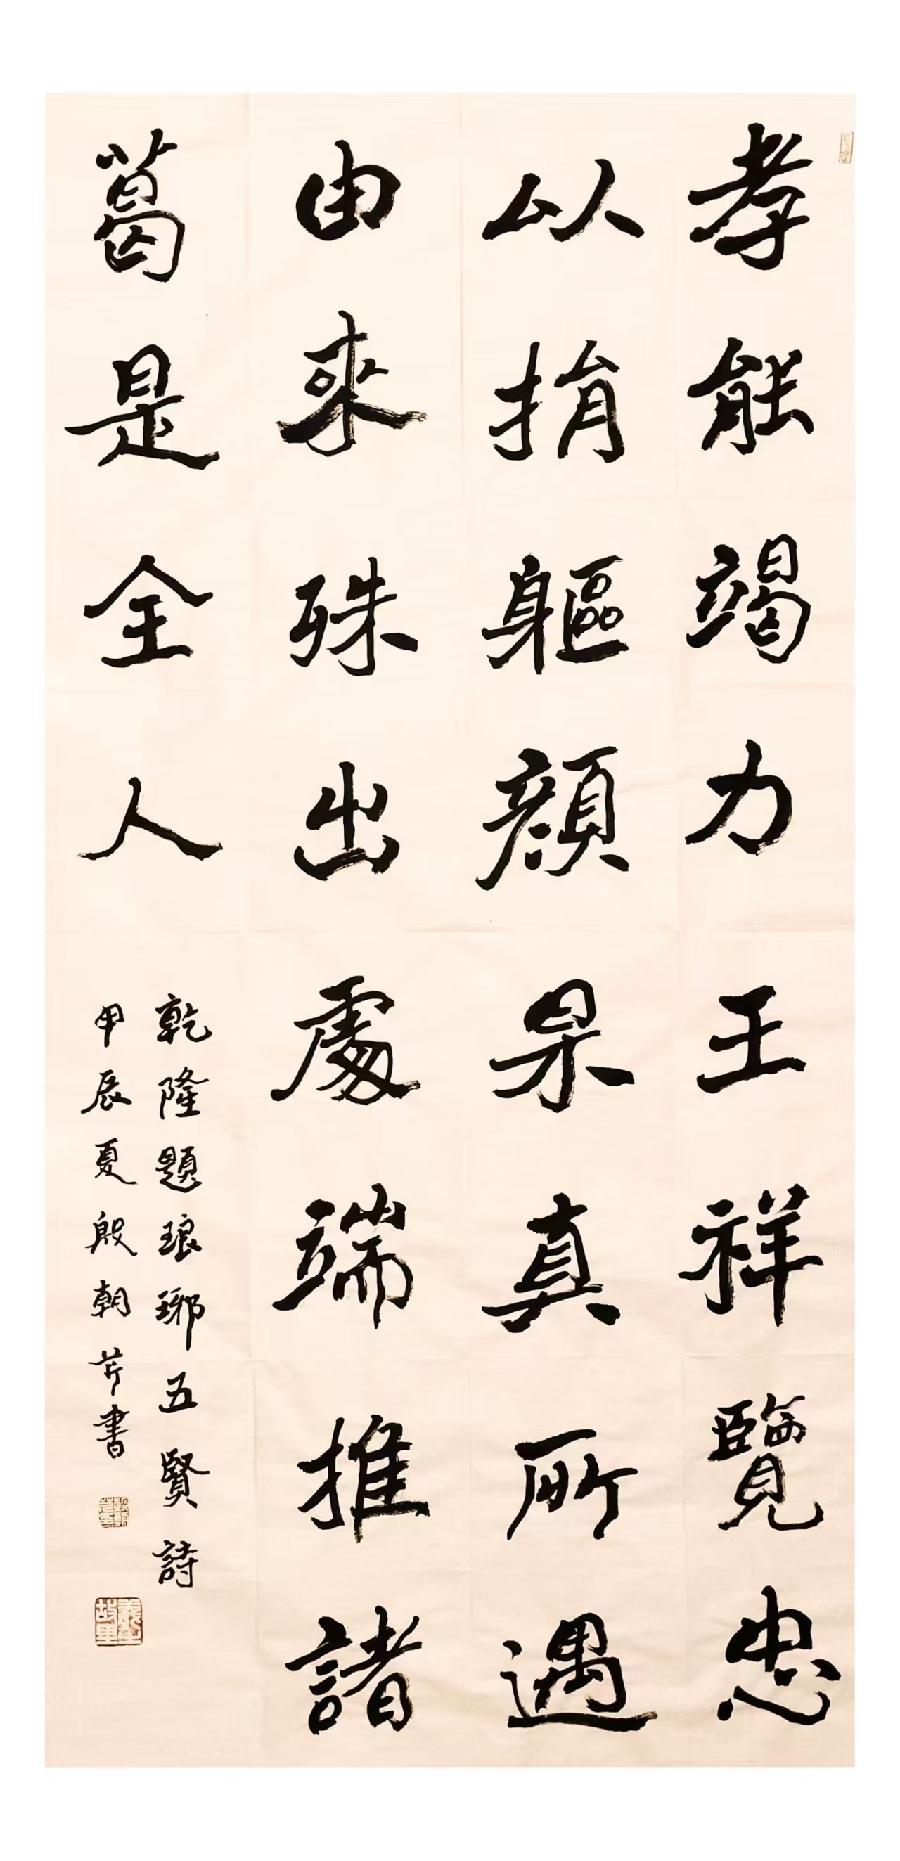 孝能竭力王祥覽忠
以捐軀顏杲真所遇
由來殊出處端推諸
葛是全人
乾隆題琅琊五賢詩
甲辰夏殷朝芹書
羲之故里